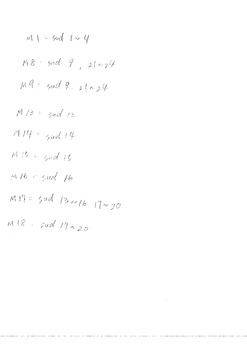 M1 = sud 1~4
M8 - sud 9, 21~24
M9 - sud 9, 21~24
M13 = sud 13
M14 - sud 14
M15 - sud 15
M16 - sud 16
M17 = sud 13~16 17~20
M18 - sud 17~20